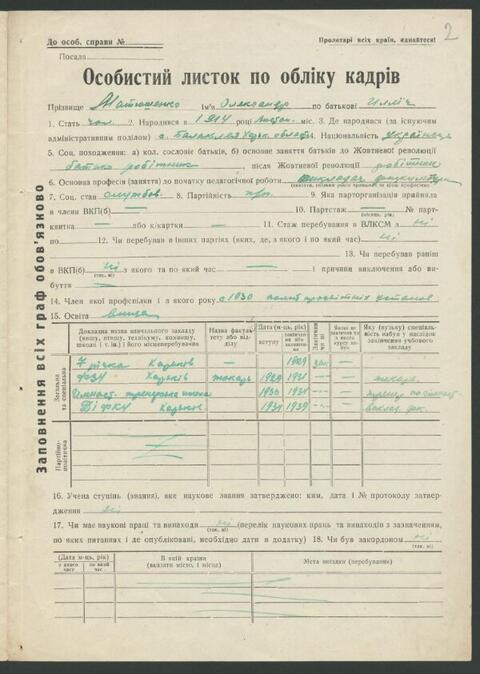 2
До особ. справи № Пролетарі всіх країн, єднайтеся!
Посада
Особистий листок по обліку кадрів
Прізвище Матюшенко Ім'я Олександр по батькові Ілліч
1. Стать чол. 2. Народився в 1914 році міс. 3. Де народився (за існуючим
адміністративним поділом) с. Балаклея Харк. області 4. Національність українець
5. Соц. походження: а) кол. сословіє батьків, б) основне заняття батьків до Жовтневої революції
батько робітник після Жовтневої революції робітник
6. Основна професія (заняття) до початку педагогічної роботи викладач фізкультури
7. Соц. стан службов. 8. Партійність 9. Яка парторганізація прийняла
в члени ВКП(б) — 10. Партстаж — № парт-
(місяць, рік)
квитка — або к/картки — 11. Стаж перебування в ВЛКСМ з ні
по — 12. Чи перебував в інших партіях (яких, де, з якого і по який час) ні
13. Чи перебував раніш
в ВКП(б) ні з якого та по який час — і причини виключення або ви-
(так, ні)
буття —
14. Член якої профспілки і з якого року с 1930
15. Освіта вища
Заповнення всіх граф обов'язково
Загальна та спеціальна
Партійно-політична
Докладна назва навчального закладу (вишу, втишу, технікуму, комвишу, школи і т. ін.) і його місцеперебування
Назва факультету або відділу
Дата (м-ць, рік)
вступу
Яку (вузьку) спеціальність набув в наслідок закінчення учбового закладу
7 річка Харьков 1929 зак. —
ФЗУ Харьків токарь 1929 1931 — — токарь
школа 1930 1934 — —
Харьков 1934 1939 — —
16. Учена ступінь (звання), яке наукове звання затверджено: ким, дата і № протоколу затвер-
дження ні
17. Чи має наукові праці та винаходи ні (перелік наукових прань та винаходів з зазначенням,
(так, ні)
по яких питаннях і де опубліковані, необхідно дати в додатку) 18. Чи був закордоном ні
(так, ні)
(Дата м-ць, рік)
з якого часу
по який час
В якій країні
(вказати місто, і країну)
Мета поїздки (перебування)